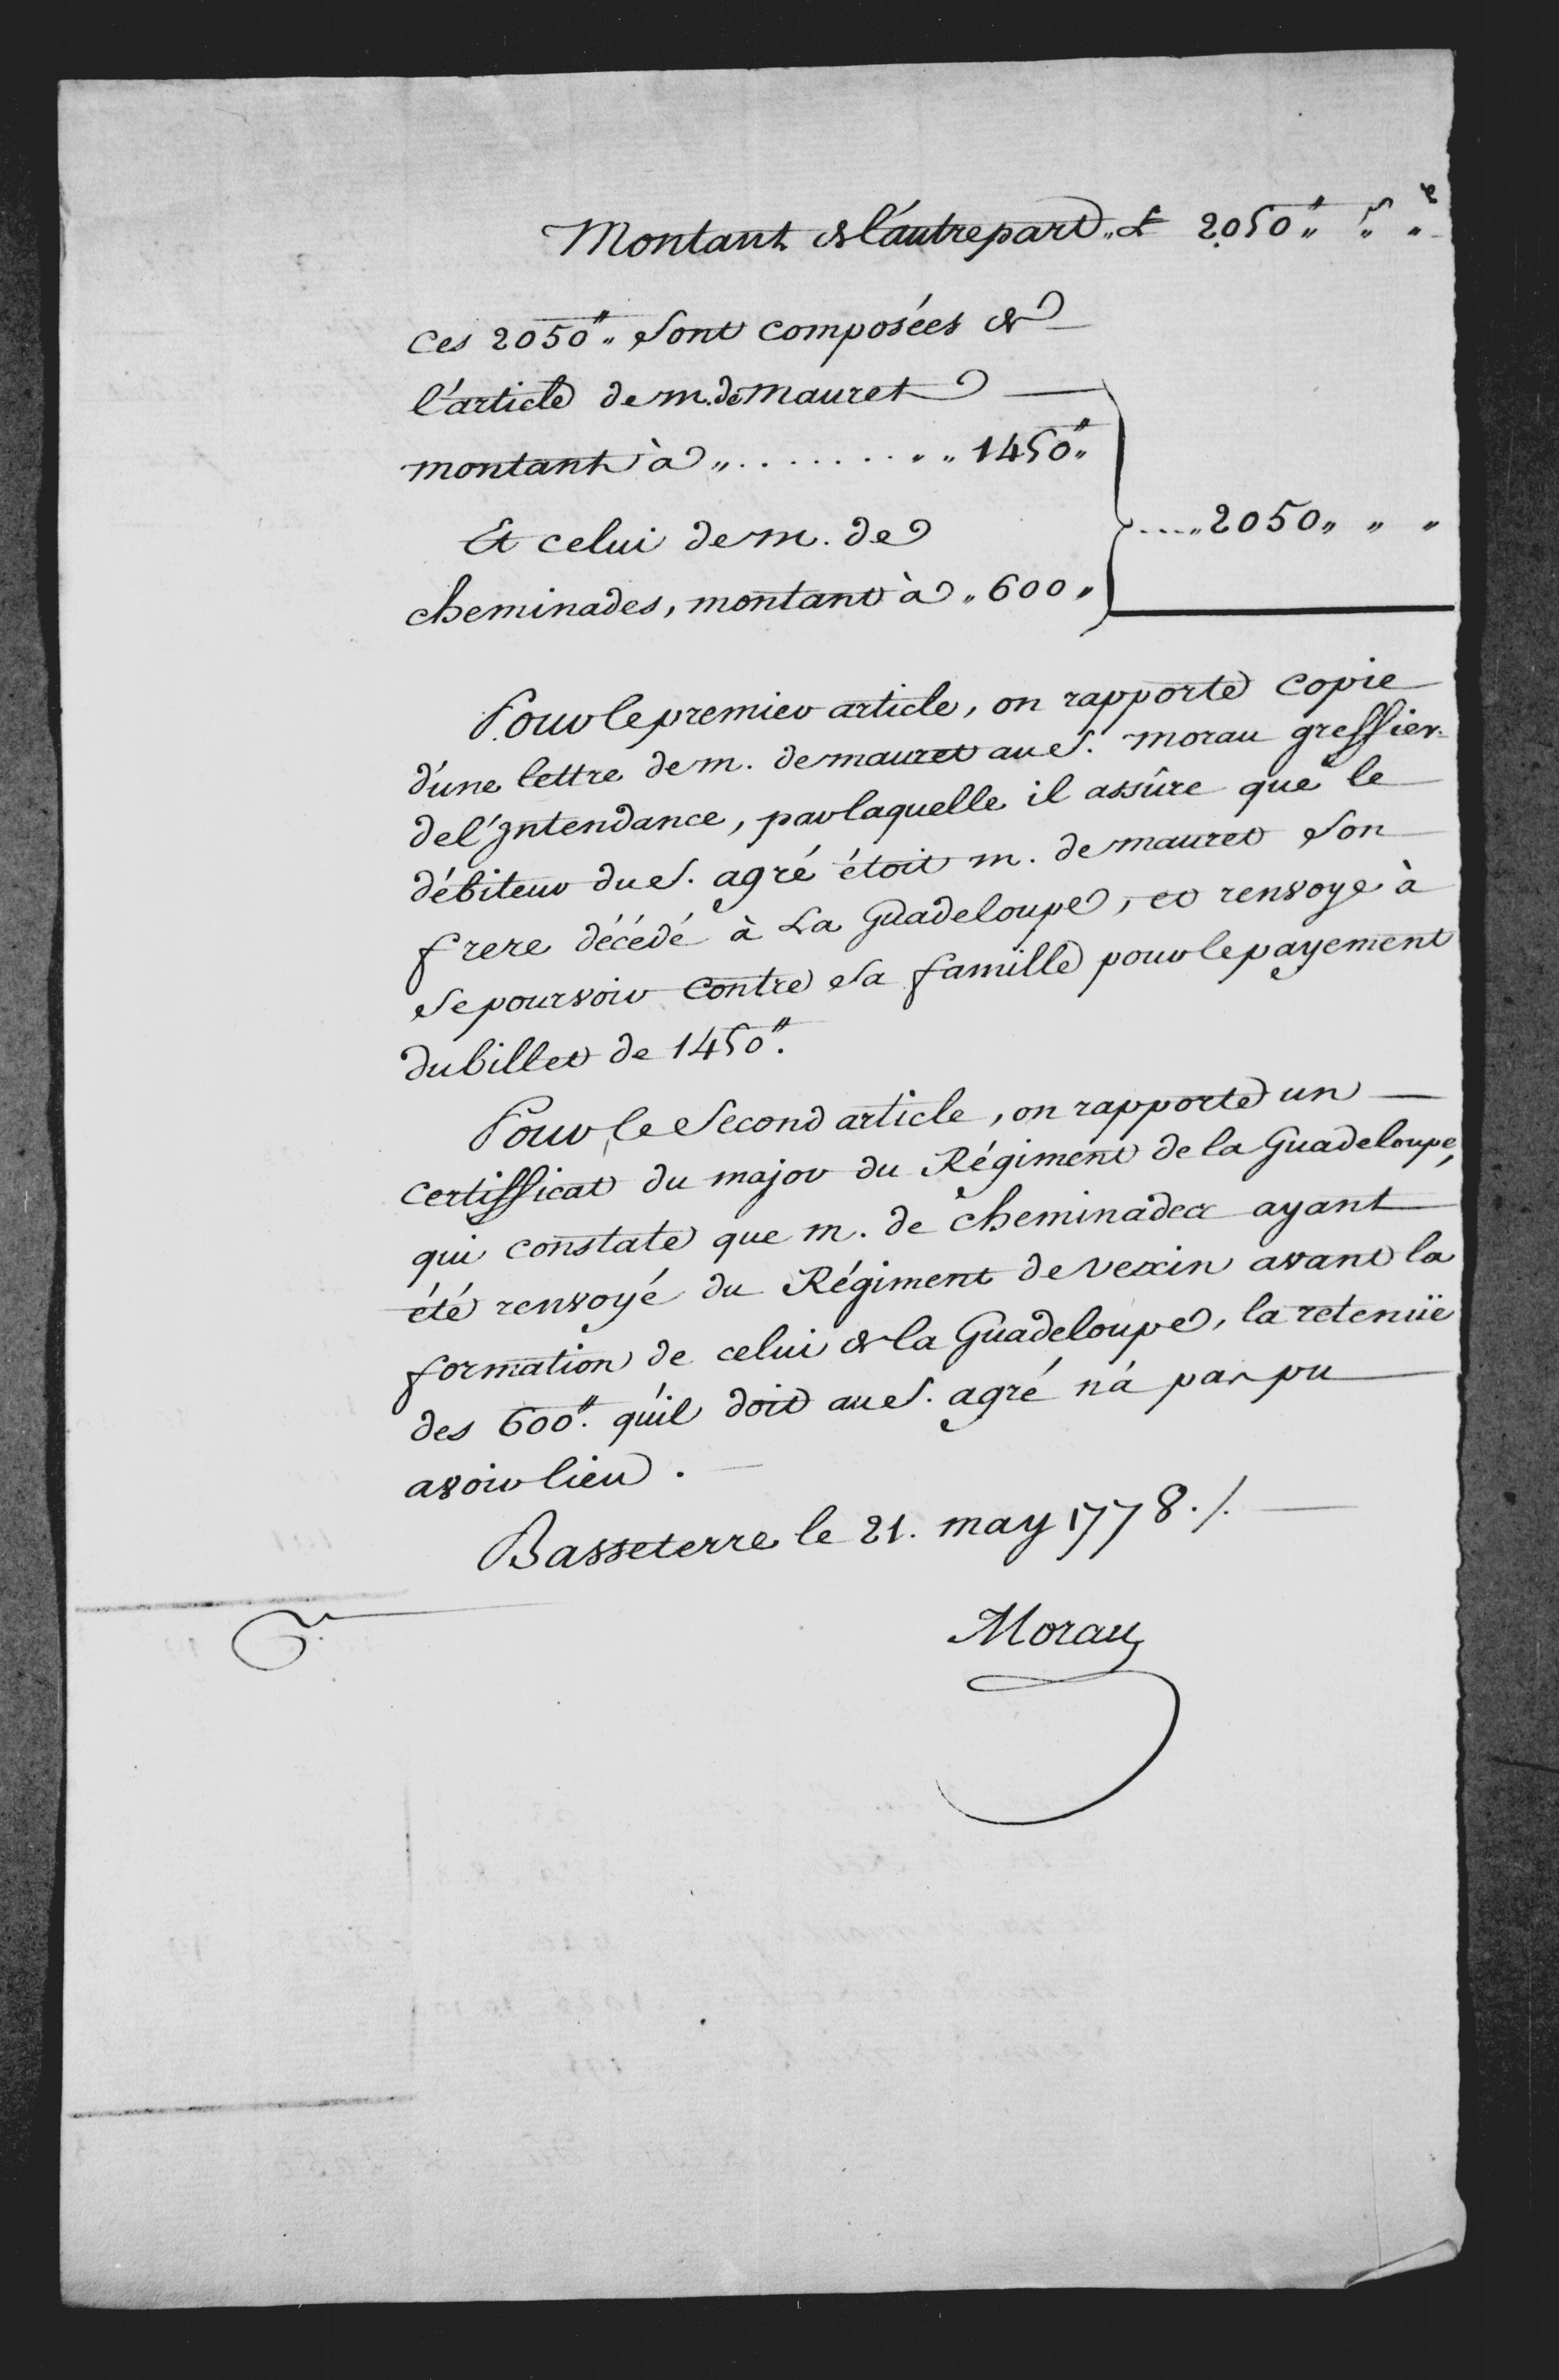 Montant de l'autre part „ £ 2050ᵗᵗ „ ˢ „ ᵈ „
Ces 2050ᵗᵗ „ Sont composées de
l'article de m. de Mauret —
montant à „ . . . . . . . „ „ 1450ᵗᵗ „
....„ 2050 „ „ „
Et celui de m. de
cheminades, montant à „ 600 „
Pour le premier article, on rapporte Copie
d'une lettre de m. de mauret au S. morau greffier
de l'Intendance, par laquelle il assûre que le
débiteur du S. agré étoit m. de mauret Son
frere décédé à La Guadeloupe, et renvoye à
Se pourvoir Contre Sa famille pour le payement
du billet de 1450ᵗᵗ.
Pour le Second article, on rapporte un —
Certifficat du major du Régiment de la Guadeloupe,
qui Constate que m. de cheminades ayant
été renvoyé du Régiment de vexin avant la
formation de celui de la Guadeloupe, la retenüe
des 600ᵗᵗ. qu'il doit au S. agré n'a pas pu
avoir lieu. —
Basseterre le 21. may 1778 ./. —
Morau